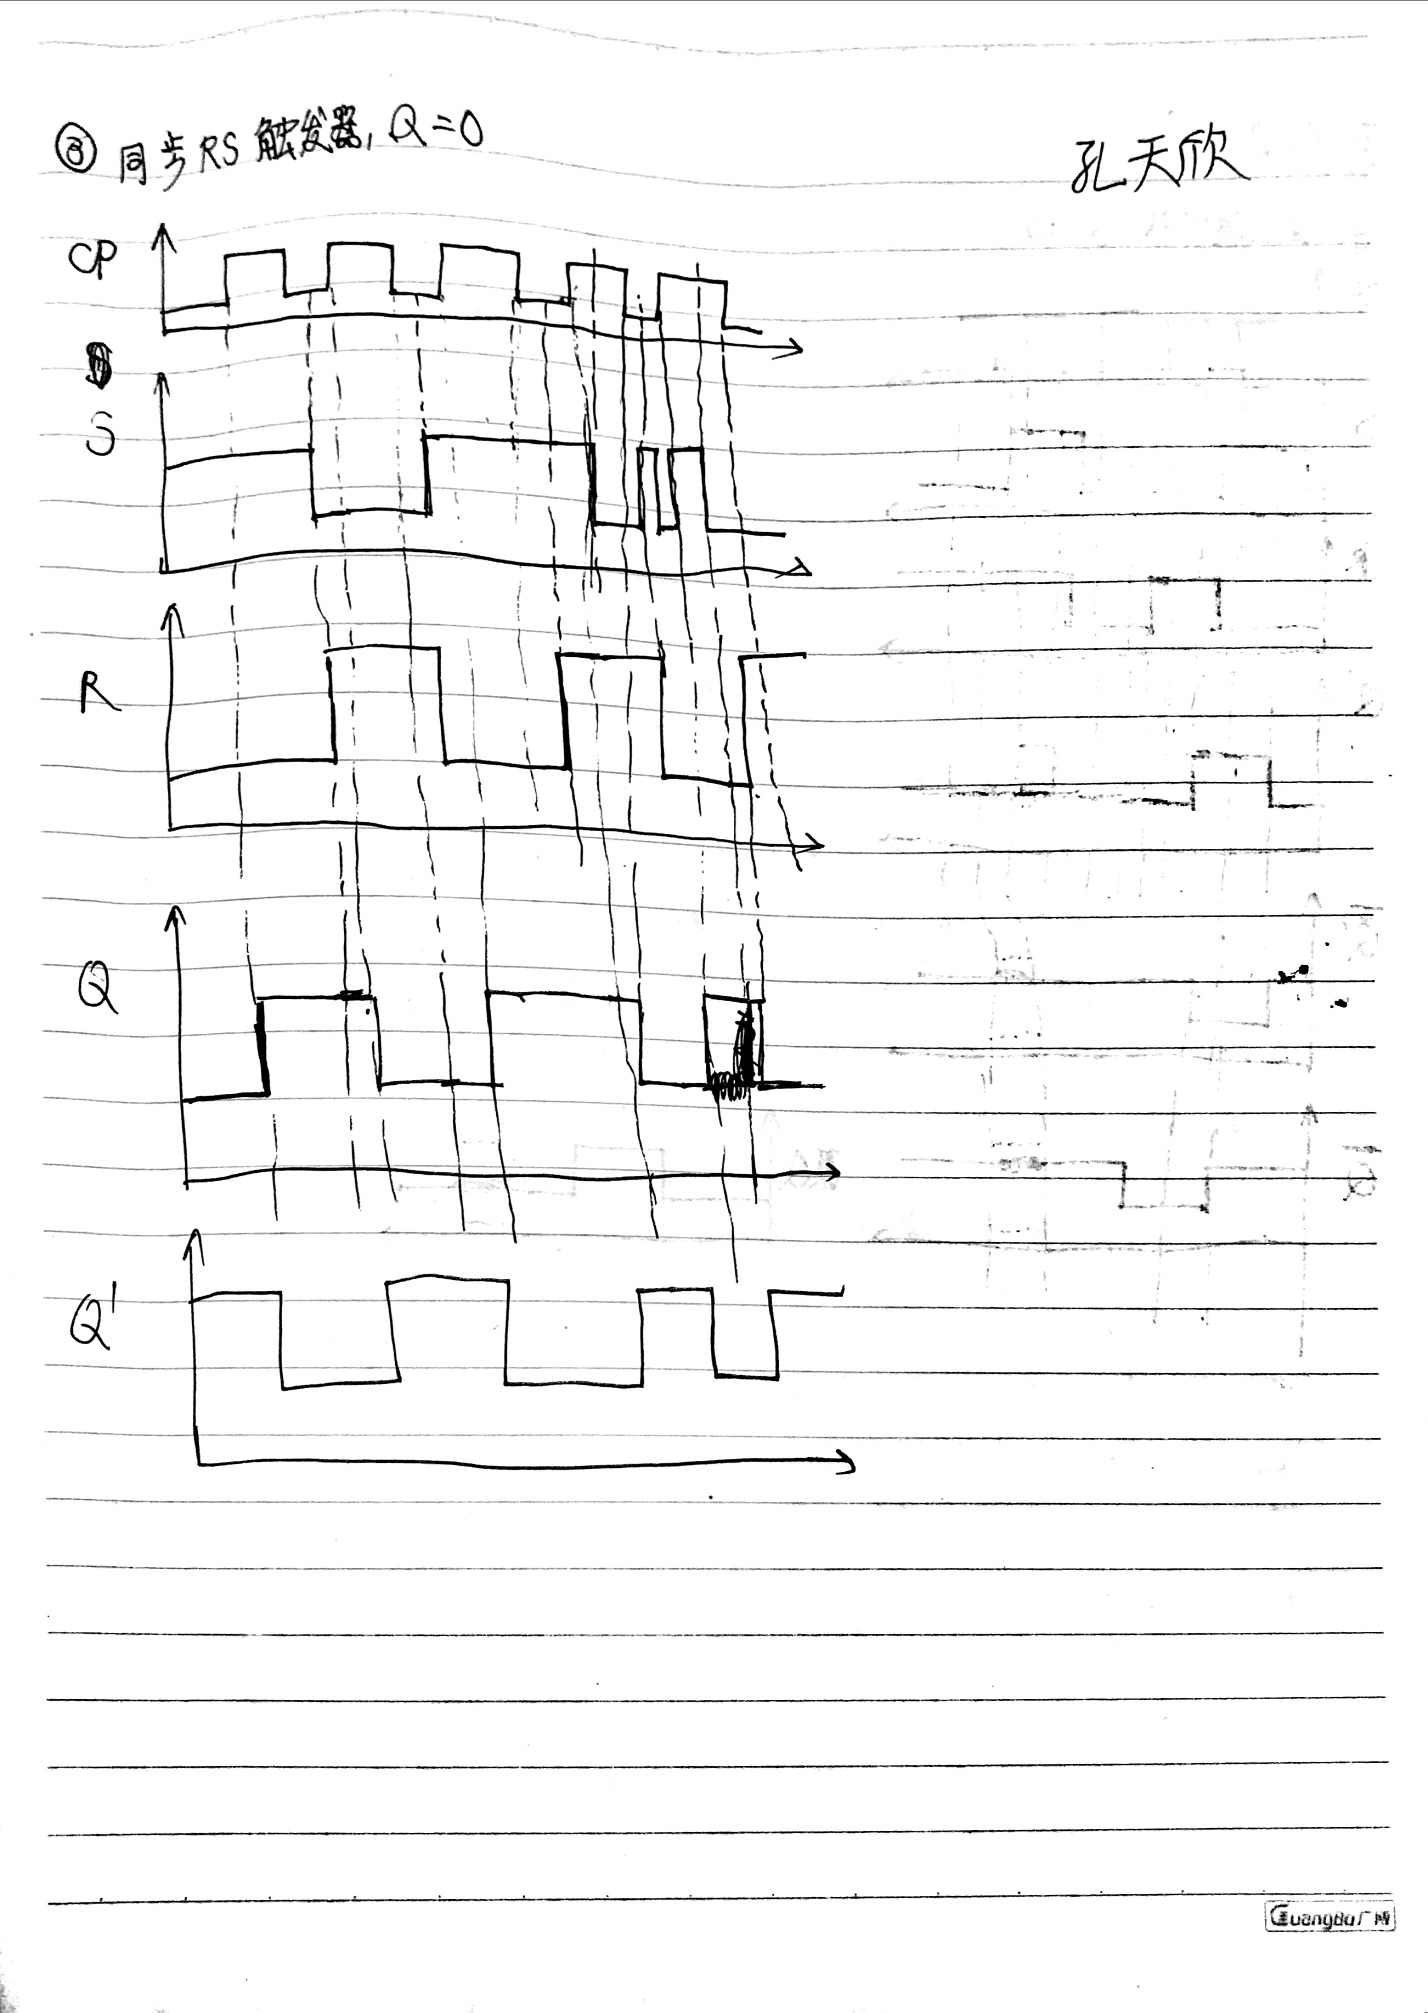 ③ 同步RS 触发器, Q=0
孔天欣
CP
S
R
Q
Q'
GuangBo广博